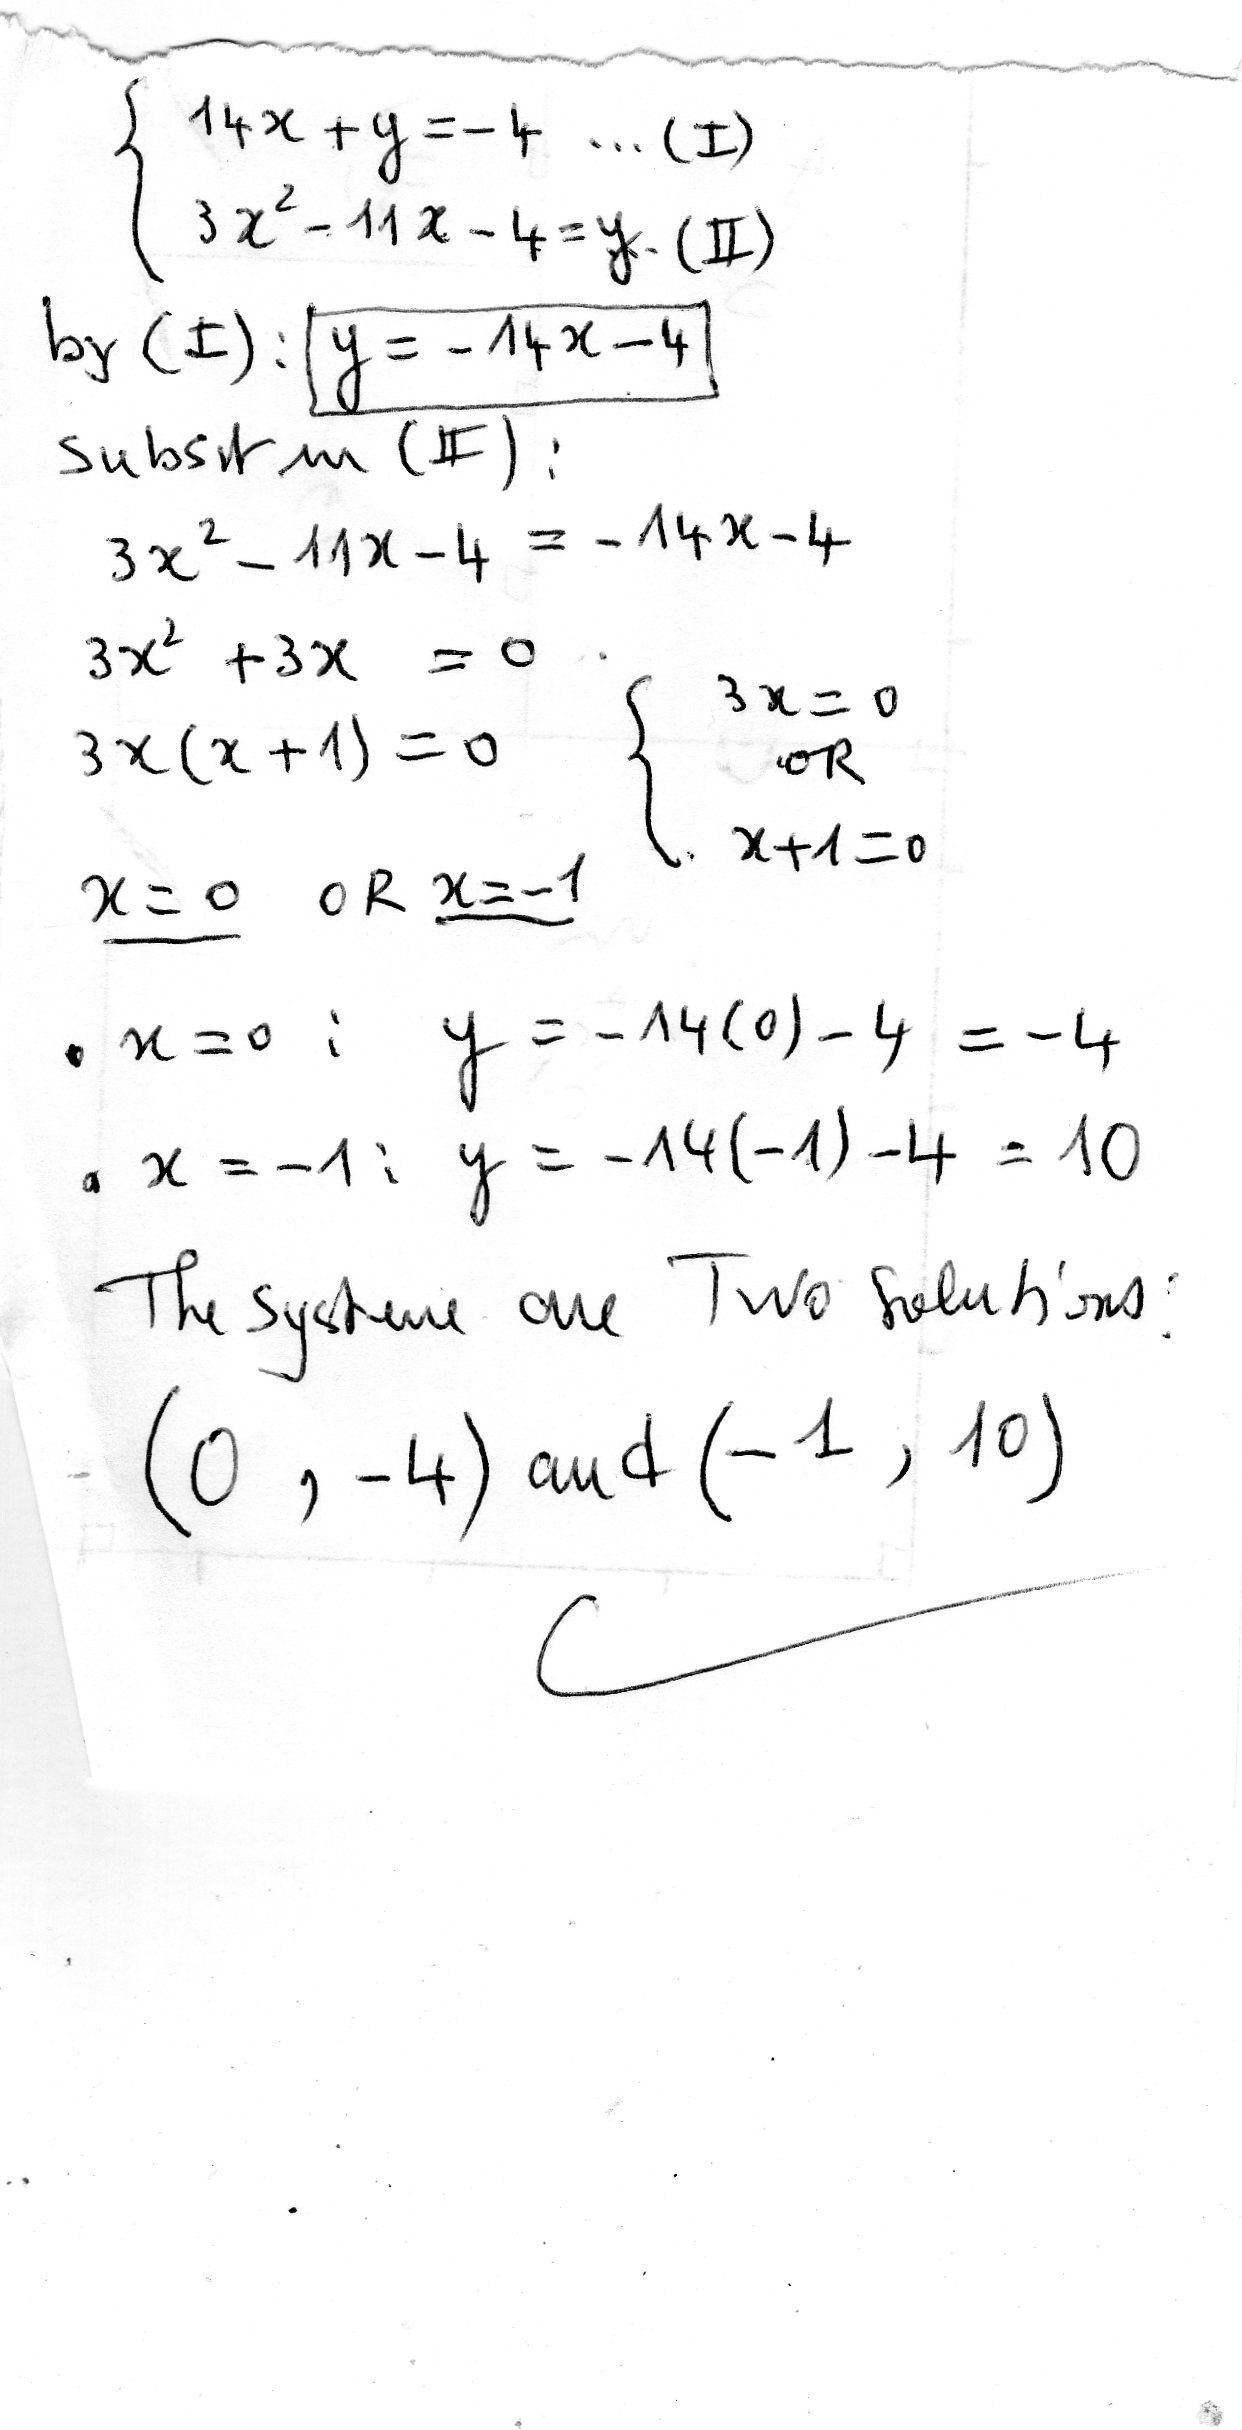 14x + y = -4 ... (I)
3x² - 11x - 4 = y. (II)
by (I): y = -14x - 4
subsit in (II):
3x² - 11x - 4 = -14x - 4
3x² + 3x = 0
3x(x + 1) = 0 { 3x = 0
OR
x + 1 = 0
x = 0 OR x = -1
• x = 0 : y = -14(0) - 4 = -4
• x = -1 : y = -14(-1) - 4 = 10
The systeme are Two solutions:
(0 , -4) and (-1 , 10)